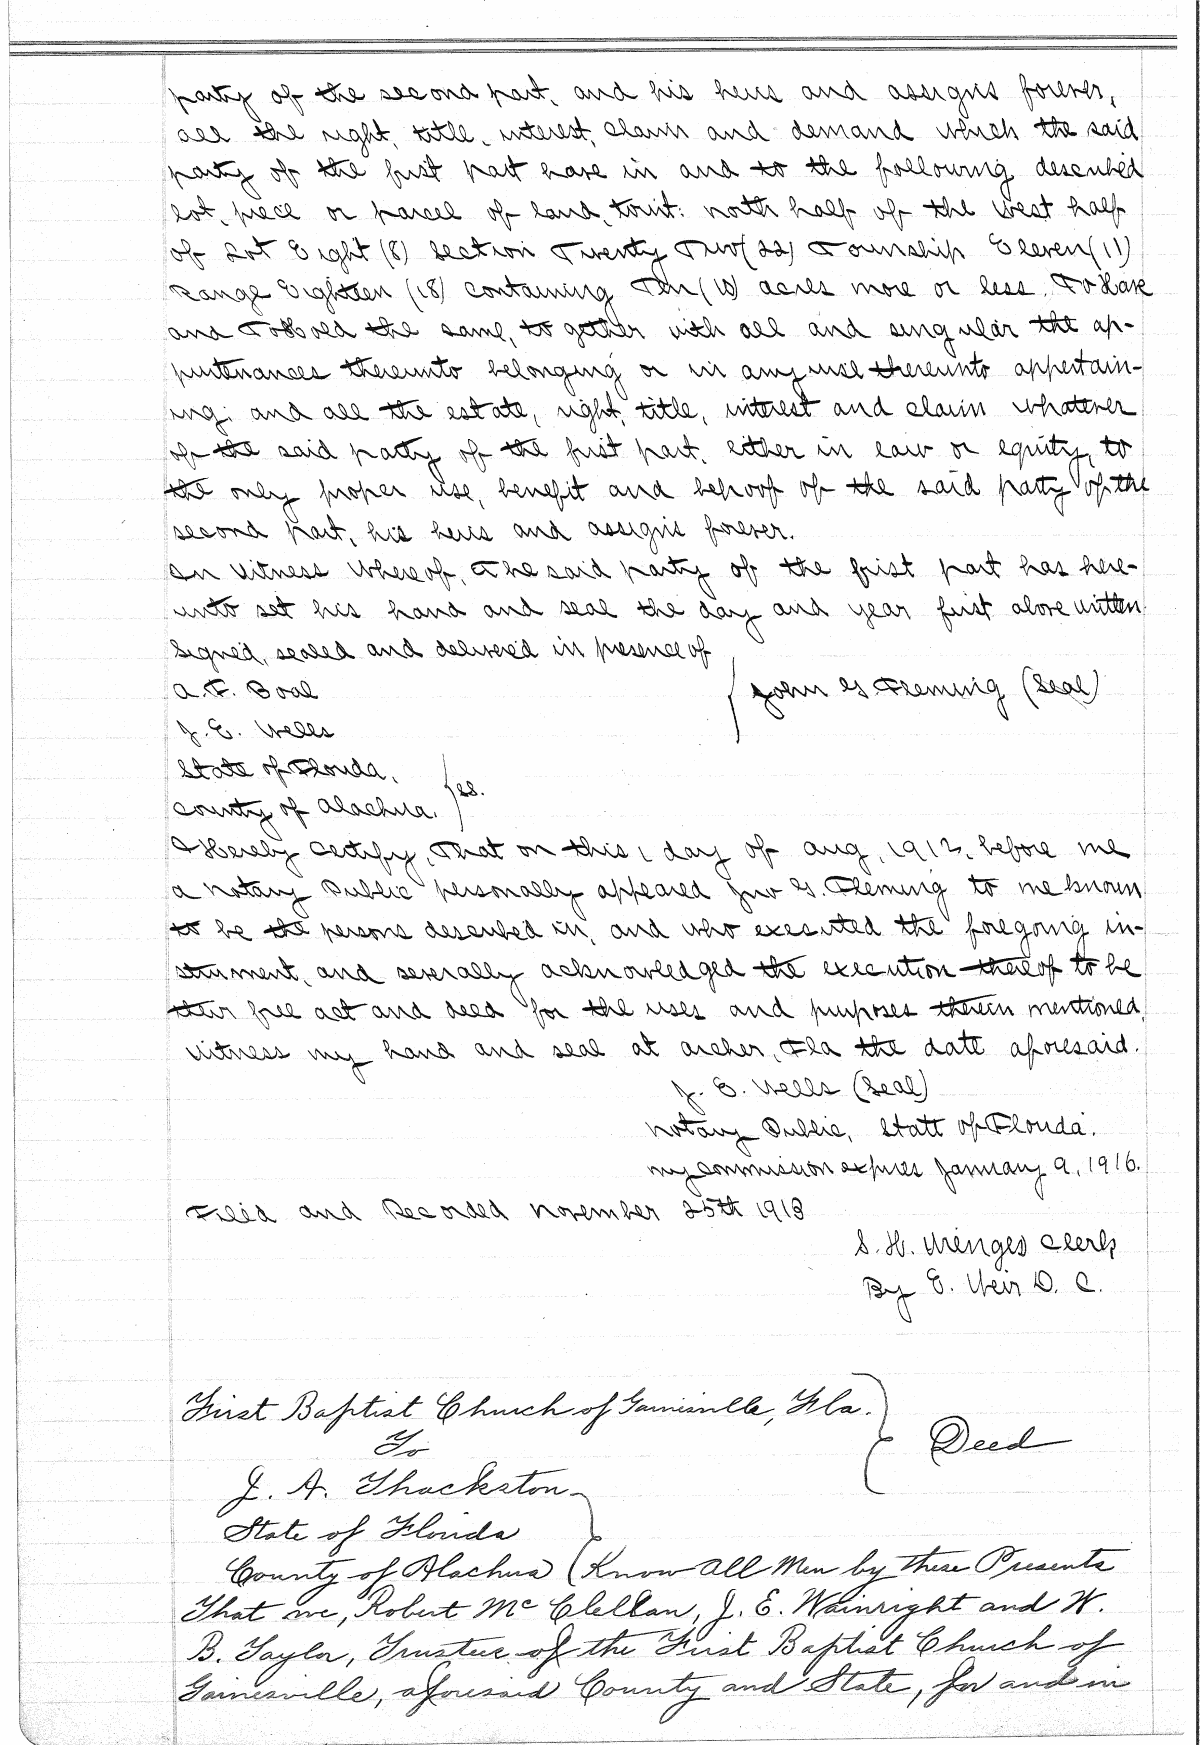 party of the second part, and his heirs and assigns forever,
all the right, title, interest, claim and demand which the said
party of the first part have in and to the following described
lot, piece or parcel of land, towit: north half of the West half
of Lot Eight (8) Section Twenty Two (22) Township Eleven (11)
Range Eighteen (18) containing Ten (10) acres more or less. To Have
and To Hold the same, together with all and singular the ap-
purtenances thereunto belonging or in anywise thereunto appertain-
ing: and all the estate, right, title, interest and claim whatever
of the said party of the first part, either in law or equity, to
the only proper use, benefit and behoof of the said party of the
second part, his heirs and assigns forever.
In Witness Whereof, The said party of the first part has here-
unto set his hand and seal the day and year first above written
Signed, sealed and delivered in presence of
A. F. Boal
John G. Fleming (Seal)
J. E. Wells
State of Florida,
ss.
County of Alachua.
I Hereby Certify, That on this 1 day of Aug, 1913, before me
a Notary Public personally appeared Jno G. Fleming to me known
to be the persons described in, and who executed the foregoing in-
strument, and severally acknowledged the execution thereof to be
their free act and deed for the uses and purposes therein mentioned,
Witness my hand and seal at Archer, Fla the date aforesaid.
J. E. Wells (Seal)
Notary Public, State of Florida.
My commission expires January 9, 1916.
Filed and Recorded November 25th 1913
S. H. Wienges Clerk
By E. Weir D. C.
First Baptist Church of Gainesville, Fla.
To
Deed
J. A. Thackston
State of Florida
County of Alachua Know All Men by these Presents
That we, Robert McClellan, J. E. Wainright and W.
B. Taylor, Trustees of the First Baptist Church of
Gainesville, aforesaid County and State, for and in